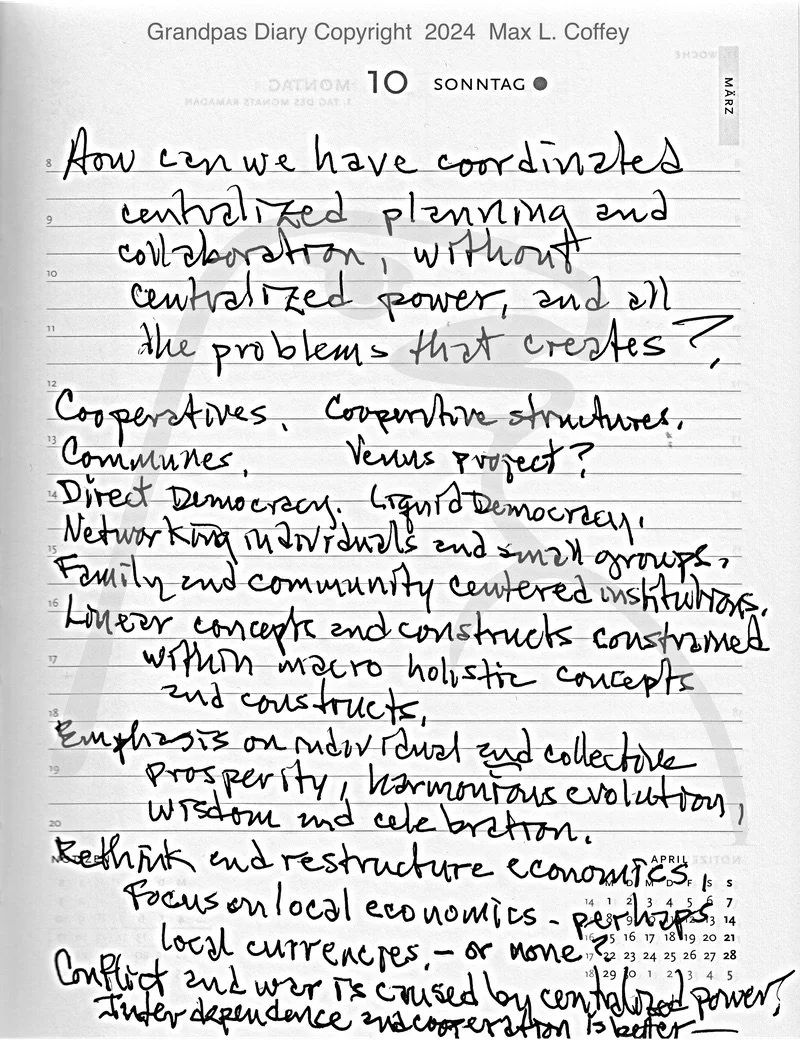 Grandpas Diary Copyright 2024 Max L. Coffey
10 SONNTAG
MÄRZ
8 How can we have coordinated
9 centralized planning and
collaboration, without
10 centralized power, and all
11 the problems that creates?
12
Cooperatives. Cooperitive structures.
13 Communes. Venus project?
14 Direct Democracy. Liquid Democracy.
Networking individuals and small groups.
15 Family and community centered institutions.
16 Linear concepts and constructs constrained
17 within macro holistic concepts
18 and constructs.
Emphasis on individual and collective
19 prosperity, harmonious evolution,
20 wisdom and celebration.
Rethink and restructure economics.
NOTIZEN
APRIL
Focus on local economics - perhaps
local currencies. - or none?
Conflict and war is caused by centralized power.
Interdependence and cooperation is better —
M D M D F S S
14 1 2 3 4 5 6 7
8 9 13 14
15 16 17 18 19 20 21
17 22 23 24 25 26 27 28
18 29 30 1 2 3 4 5